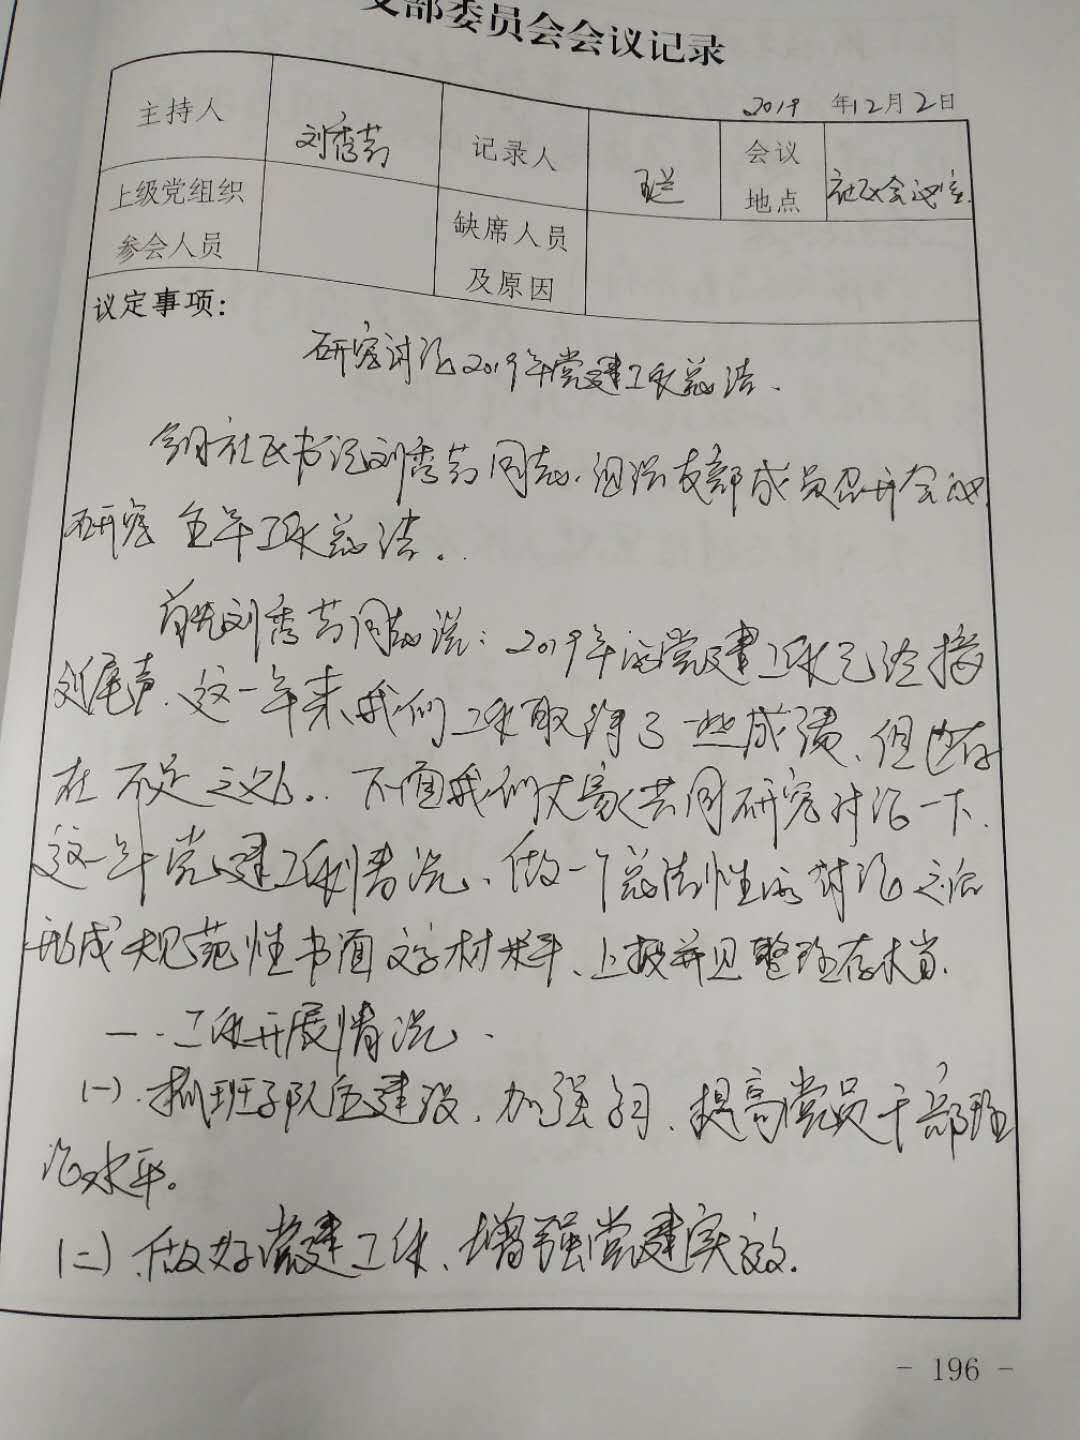 支部委员会会议记录
2019 年12月2日
主持人 刘秀芬 记录人 王兰 会议地点 社区会议室
上级党组织参会人员 缺席人员及原因
议定事项:
研究讨论2019年党建工作总结.
今日社区书记刘秀芬同志.组织支部成员召开会议
研究全年工作总结.
首先刘秀芬同志说:2019年的党建工作已经接
近尾声.这一年来,我们工作取得了一些成绩,但也存
在不足之处.下面我们大家共同研究讨论一下.
这一年党建工作情况、做一个总结性的讨论之后
形成规范性书面文字材料、上报并且整理存档.
一.工作开展情况.
(一).抓班子队伍建设.加强学习、提高党员干部理
论水平。
(二).做好党建工作、增强党建实效.
- 196 -